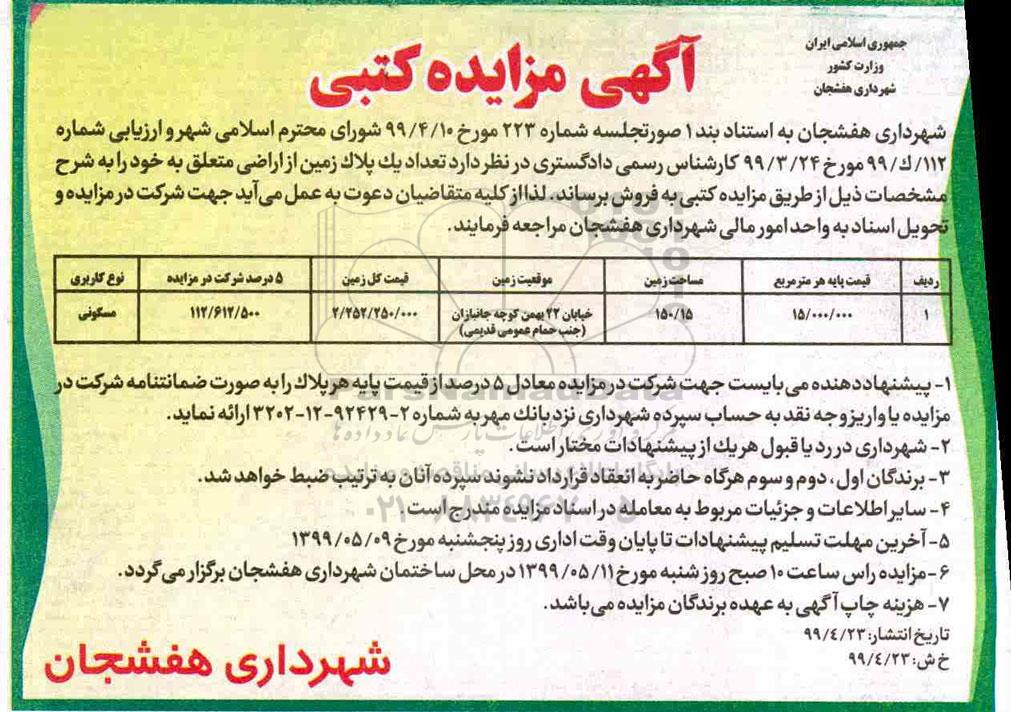 جمهوری اسلامی ایران
وزارت کشور
شهرداری هفشجان
آگهی مزایده کتبی
شهرداری هفشجان به استناد بند ۱ صورتجلسه شماره ۲۲۳ مورخ ۹۹/۴/۱۰ شورای محترم اسلامی شهر و ارزیابی شماره
۱۱۲/ك/۹۹ مورخ ۹۹/۳/۲۴ کارشناس رسمی دادگستری در نظر دارد تعداد یك پلاك زمین از اراضی متعلق به خود را به شرح
مشخصات ذیل از طریق مزایده کتبی به فروش برساند. لذا از کلیه متقاضیان دعوت به عمل می‌آید جهت شرکت در مزایده و
تحویل اسناد به واحد امور مالی شهرداری هفشجان مراجعه فرمایند.
ردیف قیمت پایه هر مترمربع مساحت زمین موقعیت زمین قیمت کل زمین ۵ درصد شرکت در مزایده نوع کاربری
۱ ۱۵/۰۰۰/۰۰۰ ۱۵۰/۱۵ خیابان ۲۲ بهمن کوچه جانبازان ۲/۲۵۲/۲۵۰/۰۰۰ ۱۱۲/۶۱۲/۵۰۰ مسکونی
(جنب حمام عمومی قدیمی)
۱- پیشنهاد دهنده می بایست جهت شرکت در مزایده معادل ۵ درصد از قیمت پایه هر پلاك را به صورت ضمانتنامه شرکت در
مزایده یا واریز وجه نقد به حساب سپرده شهرداری نزد بانك مهر به شماره ۲-۹۲۴۲۹-۱۲-۳۲۰۲ ارائه نماید.
۲- شهرداری در رد یا قبول هر یك از پیشنهادات مختار است.
۳- برندگان اول، دوم و سوم هرگاه حاضر به انعقاد قرارداد نشوند سپرده آنان به ترتیب ضبط خواهد شد.
۴- سایر اطلاعات و جزئیات مربوط به معامله در اسناد مزایده مندرج است.
۵- آخرین مهلت تسلیم پیشنهادات تا پایان وقت اداری روز پنجشنبه مورخ ۱۳۹۹/۰۵/۰۹
۶- مزایده راس ساعت ۱۰ صبح روز شنبه مورخ ۱۳۹۹/۰۵/۱۱ در محل ساختمان شهرداری هفشجان برگزار می گردد.
۷- هزینه چاپ آگهی به عهده برندگان مزایده می باشد.
تاریخ انتشار: ۹۹/٤/۲۳
خ ش: ۹۹/٤/۲۳
شهرداری هفشجان
ParsNamadData
۰۲۱-۸۸۳٤۹٦۷۰-۵